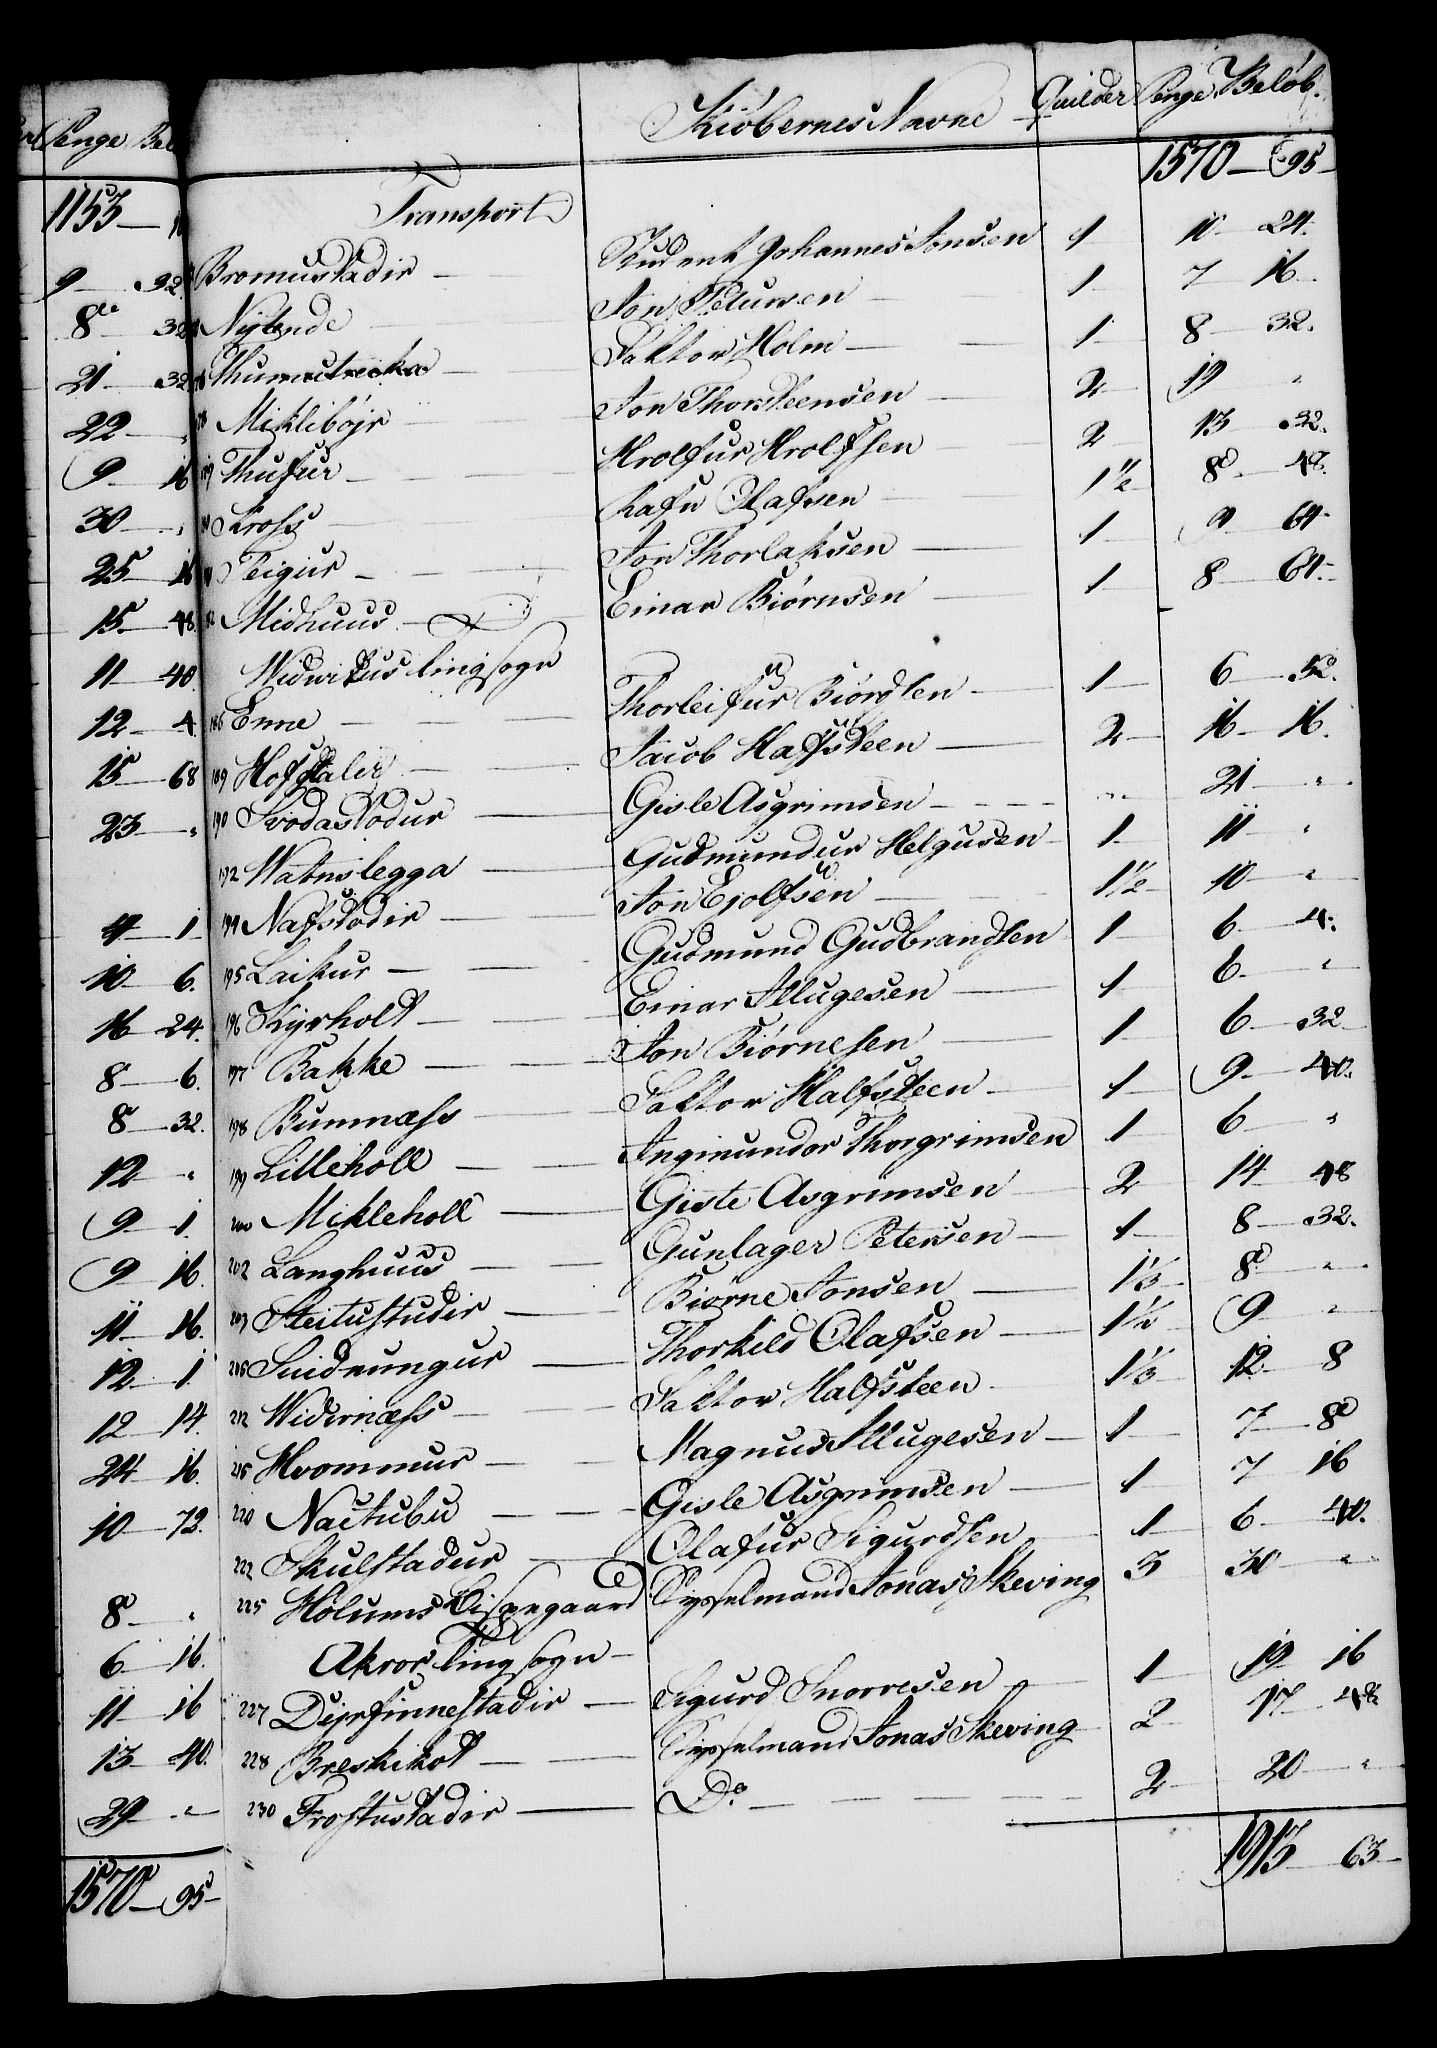 Penge Bel
1153 —
9 — 92
8 — 32
21 — 32
22 — "
9 — 16
30 — "
25 — 16
15 — 48.
11 — 40.
12 — 4
15 — 68
23 — "
4 — 1
10 — 6.
16 — 24.
8 — 6.
8 — 32.
12 — "
9 — 1.
9 — 16.
11 — 16.
12 — 1
12 — 14.
24 — 16.
10 — 72.
8 — "
6 — 16.
11 — 16
13 — 40.
29 — "
1570 — 95 —
Kiöbernes Navne Quilder Penge Belöb.
Transport 1570 — 95 —
Bromustadir — Student Johannes Jonsen 1 10 — 24.
Nylende — Jon Petursen 1 7 — 16.
Faktor Holm — 1 8 — 32.
Mikliböjr — Jon Thorsteensen — 2 19 "
Thufur — Hrolfur Hrolfsen — 2 13 — 32.
Kross — Rafn Olafsen — 1½ 8 — 48.
Teigur — Jon Thorlaksen — 1 9 — 64 —
Midhuus — Einar Biörnsen — 1 8 — 64. —
Widvikus Tingsogn
186 Enne — Thorleifur — 1 6 — 52.
189 Hofstalir — Jacob Hafsteen — 2 16 — 16.
190 Svodastodur — Gisle Asgrimsen — 21 — "
192 Watnslegga — Gudmundur Helgusen — 1 11 "
194 Nafstodir — Jon Ejolfsen — 1½ 10 — "
195 Laikur — Gudmund Gudbrandsen 1 6 — 4.
196 Kyrholt — Einar Illugesen — 1 6 — "
197 Bakke — Jon Biörnesen — 1 6 — 32
198 Bumnæss — Faktor Halfsteen — 1 9 — 40.
199 Lilleholl — Ingimundor Thorgrimsen 1 6 — "
200 Mikleholl — Gisle Asgrimsen — 2 14 — 48
202 Langhuus — Gunlager Petersen — 1 8 — 32.
203 Steitustudir — Biörne Jonsen — 1⅓ 8 — "
Thorkild Olafsen — 1½ 9 — "
212 Widirnæss — Faktor Halfsteen — 1⅓ 12 — 8
215 Hvommur — Magnus Illugesen — 1 7 — 8
220 Naitubu — Gisle Asgrimsen — 1 7 — 16
222 Skulstadur — Olafur Sigurdsen — 1 6 — 40.
225 Holums Bispegaard Sysselmand Jonas Skeving 3 30 — "
Akrors Tingsogn —
227 Dyrfinnestadir — Sigurd Snorresen — 1 19 — 16
228 Breskikot — Sysselmand Jonas Skeving 2 17 — 48
230 Frostustadir — Do — 2 20 — "
1913 — 63 —